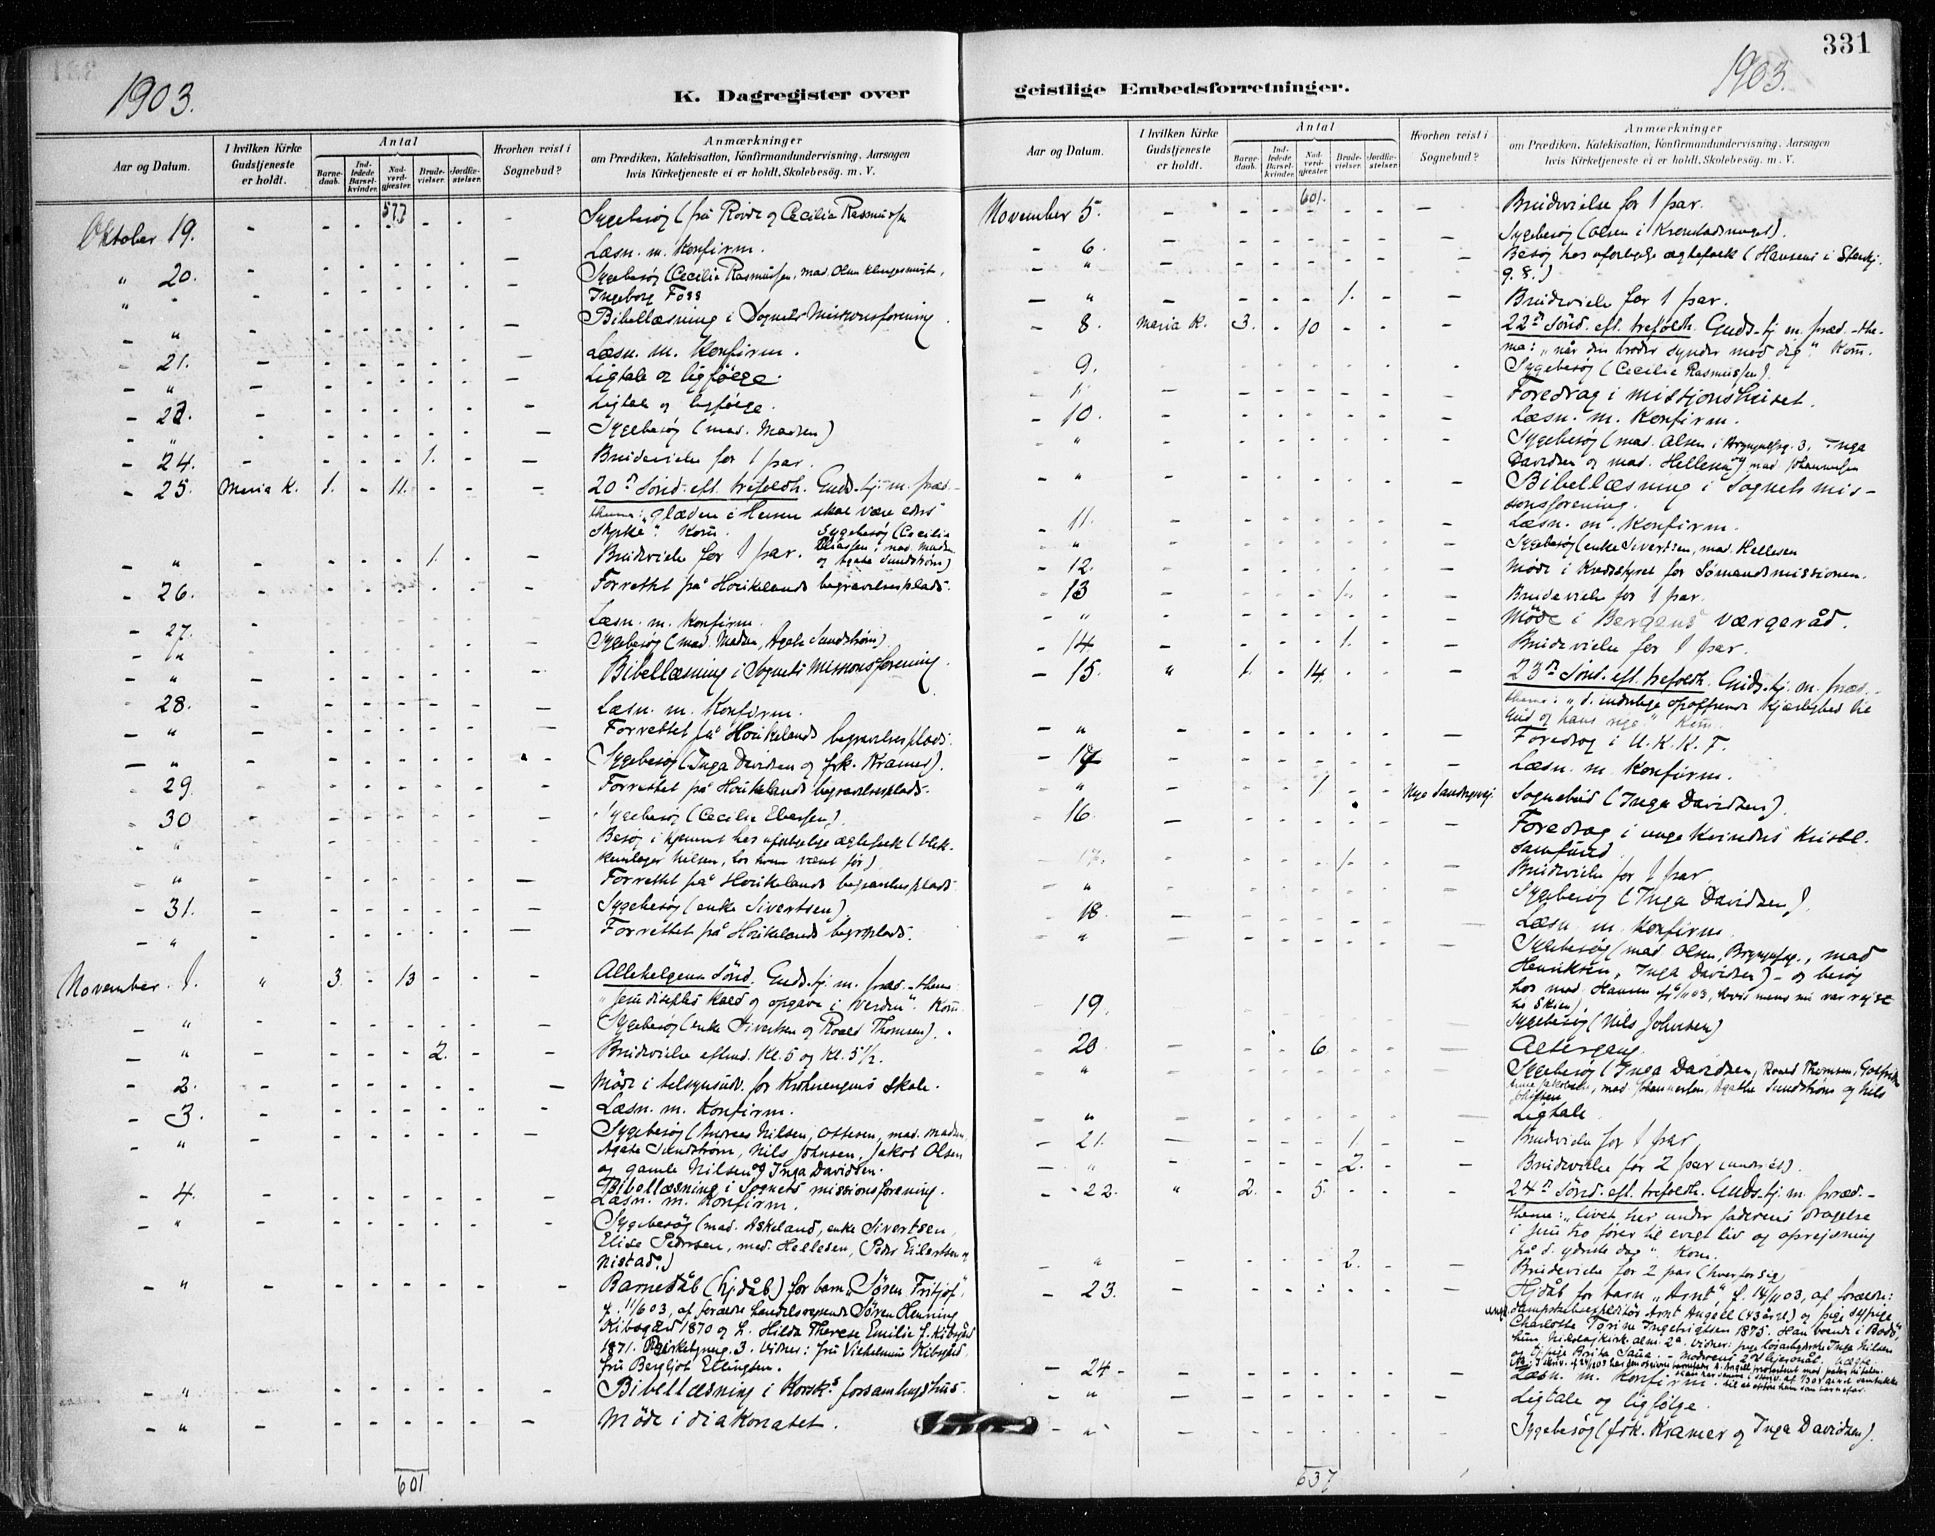 331
1903.
1903.
K. Dagregister over
geistlige Embedsforretninger.
Aar og Datum.
I hvilken Kirke Gudstjeneste er holdt.
Antal
Barnedaab.
Indledede Barselkvinder.
Nadverdgjester.
Brudevielser.
Jordfæstelser.
Hvorhen reist i Sognebud?
Anmærkninger
om Prædiken, Katekisation, Konfirmandundervisning, Aarsagen
hvis Kirketjeneste ei er holdt, Skolebesög. m. V.
577
Oktober 19. Sygebesøg (frk Rovde og Cecilia Rasmussen
Læsn. m. Konfirm.
" 20. Sygebesøg (Cecilia Rasmussen, mad. Olsen
Ingeborg Foss
" Bibellæsning i Sognets Missionsforening
" Læsn. m. Konfirm.
21. Ligtale og ligfølge.
" Ligtale og ligfølge.
Sygebesøg (mad. Madsen)
24. 1. Brudevielse for 1 par.
25. Maria K. 1. 11. 20n Sönd. eft. trefoldh. Guds.tj. m. præd.-
thema: "glæden i Herren skal være eders
Styrke". Kom. Sygebesøg (Cecilia
" 1. Brudevielse for 1 par. Eliassen, mad. Madsen
og Agate Sundstrøm)
26. Forrettet på Haukelands begravelsesplads.
27. Læsn. m. Konfirm.
" Sygebesøg (mad. Madsen, Agate Sundstrøm)
" Bibellæsning i Sognets Missionsforening.
28. Læsn. m. Konfirm.
" Forrettet på Haukelands begravelsesplads.
" Sygebesøg (Inga Davidsen og frk. Kramer).
29. Forrettet på Haukelands begravelsesplads.
30 Sygebesøg (Cecilie Ebessen).
" Besøg i hjemmet hos uforligelige ægtefolk
" Forrettet på Haukelands begravelsesplads
31. Sygebesøg (enke Sivertsen)
" Forrettet på Haukelands begr.plads.
November 1. " 3. 13 Allehelgens Sönd. Guds.tj. m. præd. - thema
"Jesu disciples kald og opgave i Verden". Kom.
" Sygebesøg (enke Sivertsen og Roald Thomsen).
" 2. Brudevielse eftmd. Kl. 5 og Kl. 5 1/2.
2. Møde i tilsynsudv. for Krohnengens skole.
3. Læsn. m. Konfirm.
" Sygebesøg (Andreas Nilsen, Ottesen, mad. Madsen,
Agate Sundstrøm, Nils Johnsen, Jakob Olsen
og gamle Nilsen og Inga Davidsen.
Bibellæsning i Sognets missionsforening.
4. Læsn. m. Konfirm.
" Sygebesøg (mad. Askeland, enke Sivertsen,
Elise Pedersen, mad. Hellesen, Peder Eilertsen og
Nistad.)
" Barnedåb (hj.dåb) for barn "Søren Fritjof",
f. 11/6 03, af forældre handelsreisende Søren Henning
Kibsgård 1870 og h. Hilda Therese Emilie f. Kibsgård
1871. 3. Vidner: fru Vilhelmine Kibsgård
fru Bergljot Ellingsen.
" Bibellæsning i Korsk.s forsamlingshus.
" Møde i diakonatet.
601
601.
November 5. Brudevielse for 1 par.
6. Sygebesøg (Olsen i Kronstadsmuget).
" Besøg hos uforligelige ægtefolk (Hansens i
9.8.)
" 1. Brudevielse for 1 par.
8. Maria K. 3. 10 22n Sönd. eft. trefoldh. Guds.tj. m. præd. - the-
ma: "når din broder synder mod dig". Kom.
9. Sygebesøg (Cecilie Rasmussen).
Foredrag i missionshuset.
10. Læsn. m. Konfirm.
" Sygebesøg (mad. Olsen i 3, Inga
Davidsen og mad. Hellesen og mad. Johannesen
" Bibellæsning i Sognets mis-
sionsforening.
11. Læsn. m. Konfirm.
" Sygebesøg (enke Sivertsen, mad. Hellesen
12. Møde i Kredsstyret for Sømandsmissionen.
13 1. Brudevielse for 1 par.
" Møde i Bergens værgeråd.
14 1. Brudevielse for 1 par.
15. " 1. 14. 23n Sönd. eft. trefoldh. Guds.tj. m. præd.-
thema: "d. inderlige opoffrende kjærlighed til
Gud og hans rige." Kom.
" Foredrag i U. K. K. F.
17 Læsn. m. Konfirm.
" 1 Nye Sandviksvej. Sognebud (Inga Davidsen).
16. Foredrag i unge Kvinders Kristl.
Samfund.
17. 1. Brudevielse for 1 par
" Sygebesøg (Inga Davidsen).
18. Læsn. m. Konfirm.
" Sygebesøg (mad. Olsen, mad
Henriksen, Inga Davidsen) - og besøg
hos mad. Hansen hvis mand nu var rejst
til Skien)
19. Sygebesøg (Nils Johnsen)
20 6 Altergang.
" Sygebesøg (Inga Davidsen, Roald Thomsen,
mad Johannessen, Agathe Sundstrøm og Nils
Johnsen
" Ligtale
21. 1. Brudevielse for 1 par
" 2. Brudevielse for 2 par
22. " 2. 5. 24n Sönd. eft. trefoldh. Guds.tj. m. præd.-
thema: "livet her under faderens dragelse
i Jesu tro fører til evigt liv og oprejsning
på d. yderste dag". Kom.
" 2. Brudevielse for 2 par (hver for sig)
23. Hj.dåb for barn "Arnt" f. 14/11 03, af forældre:
dampskibsexpeditør Arnt Angell (43 år) og pige
Charlotte Torine Ingebrigtsen 1875. Han boende i Bodø,
24 Læsn. m. Konfirm.
" Ligtale og ligfølge.
" Sygebesøg (frk. Kramer og Inga Davidsen).
637